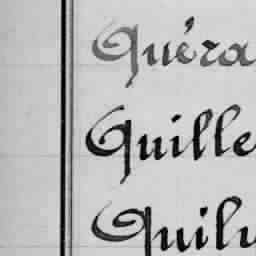 Quéra
Quille
Quilu